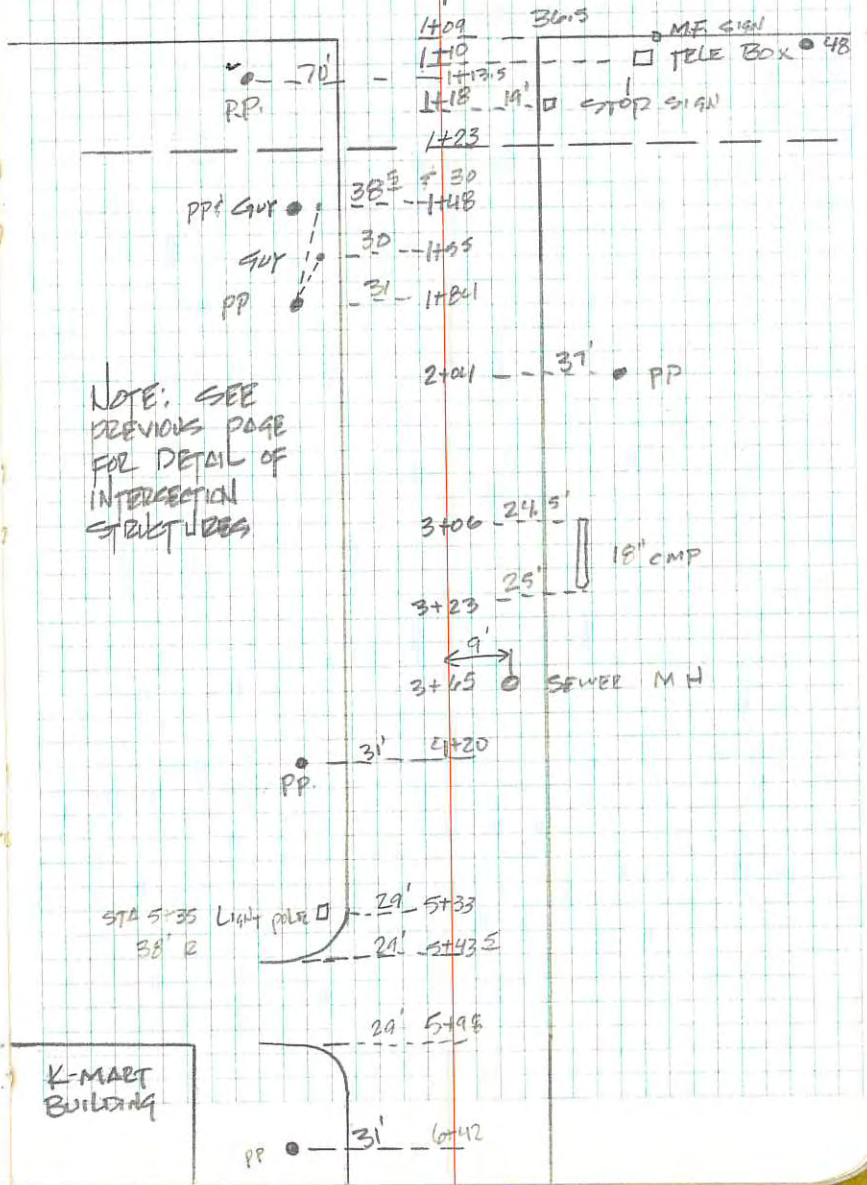 1+09 36.5
M.F. SIGN
1+10 TELE BOX 48
70' 1+13.5
1+18 19' STOP SIGN
1+23
38⁵ & 30
PP & GUY 1+48
GUY 30 1+55
PP 31 1+84
2+04 37' PP
NOTE: SEE
PREVIOUS PAGE
FOR DETAIL OF
INTERSECTION
STRUCTURES
3+06 24.5'
18" CMP
3+23 25'
9'
3+65 SEWER MH
31' 4+20
PP.
STA 5+35 LIGHT POLE 29' 5+33
38' R 29' 5+43⁵
29' 5+98
K-MART
BUILDING
PP 31' 6+42